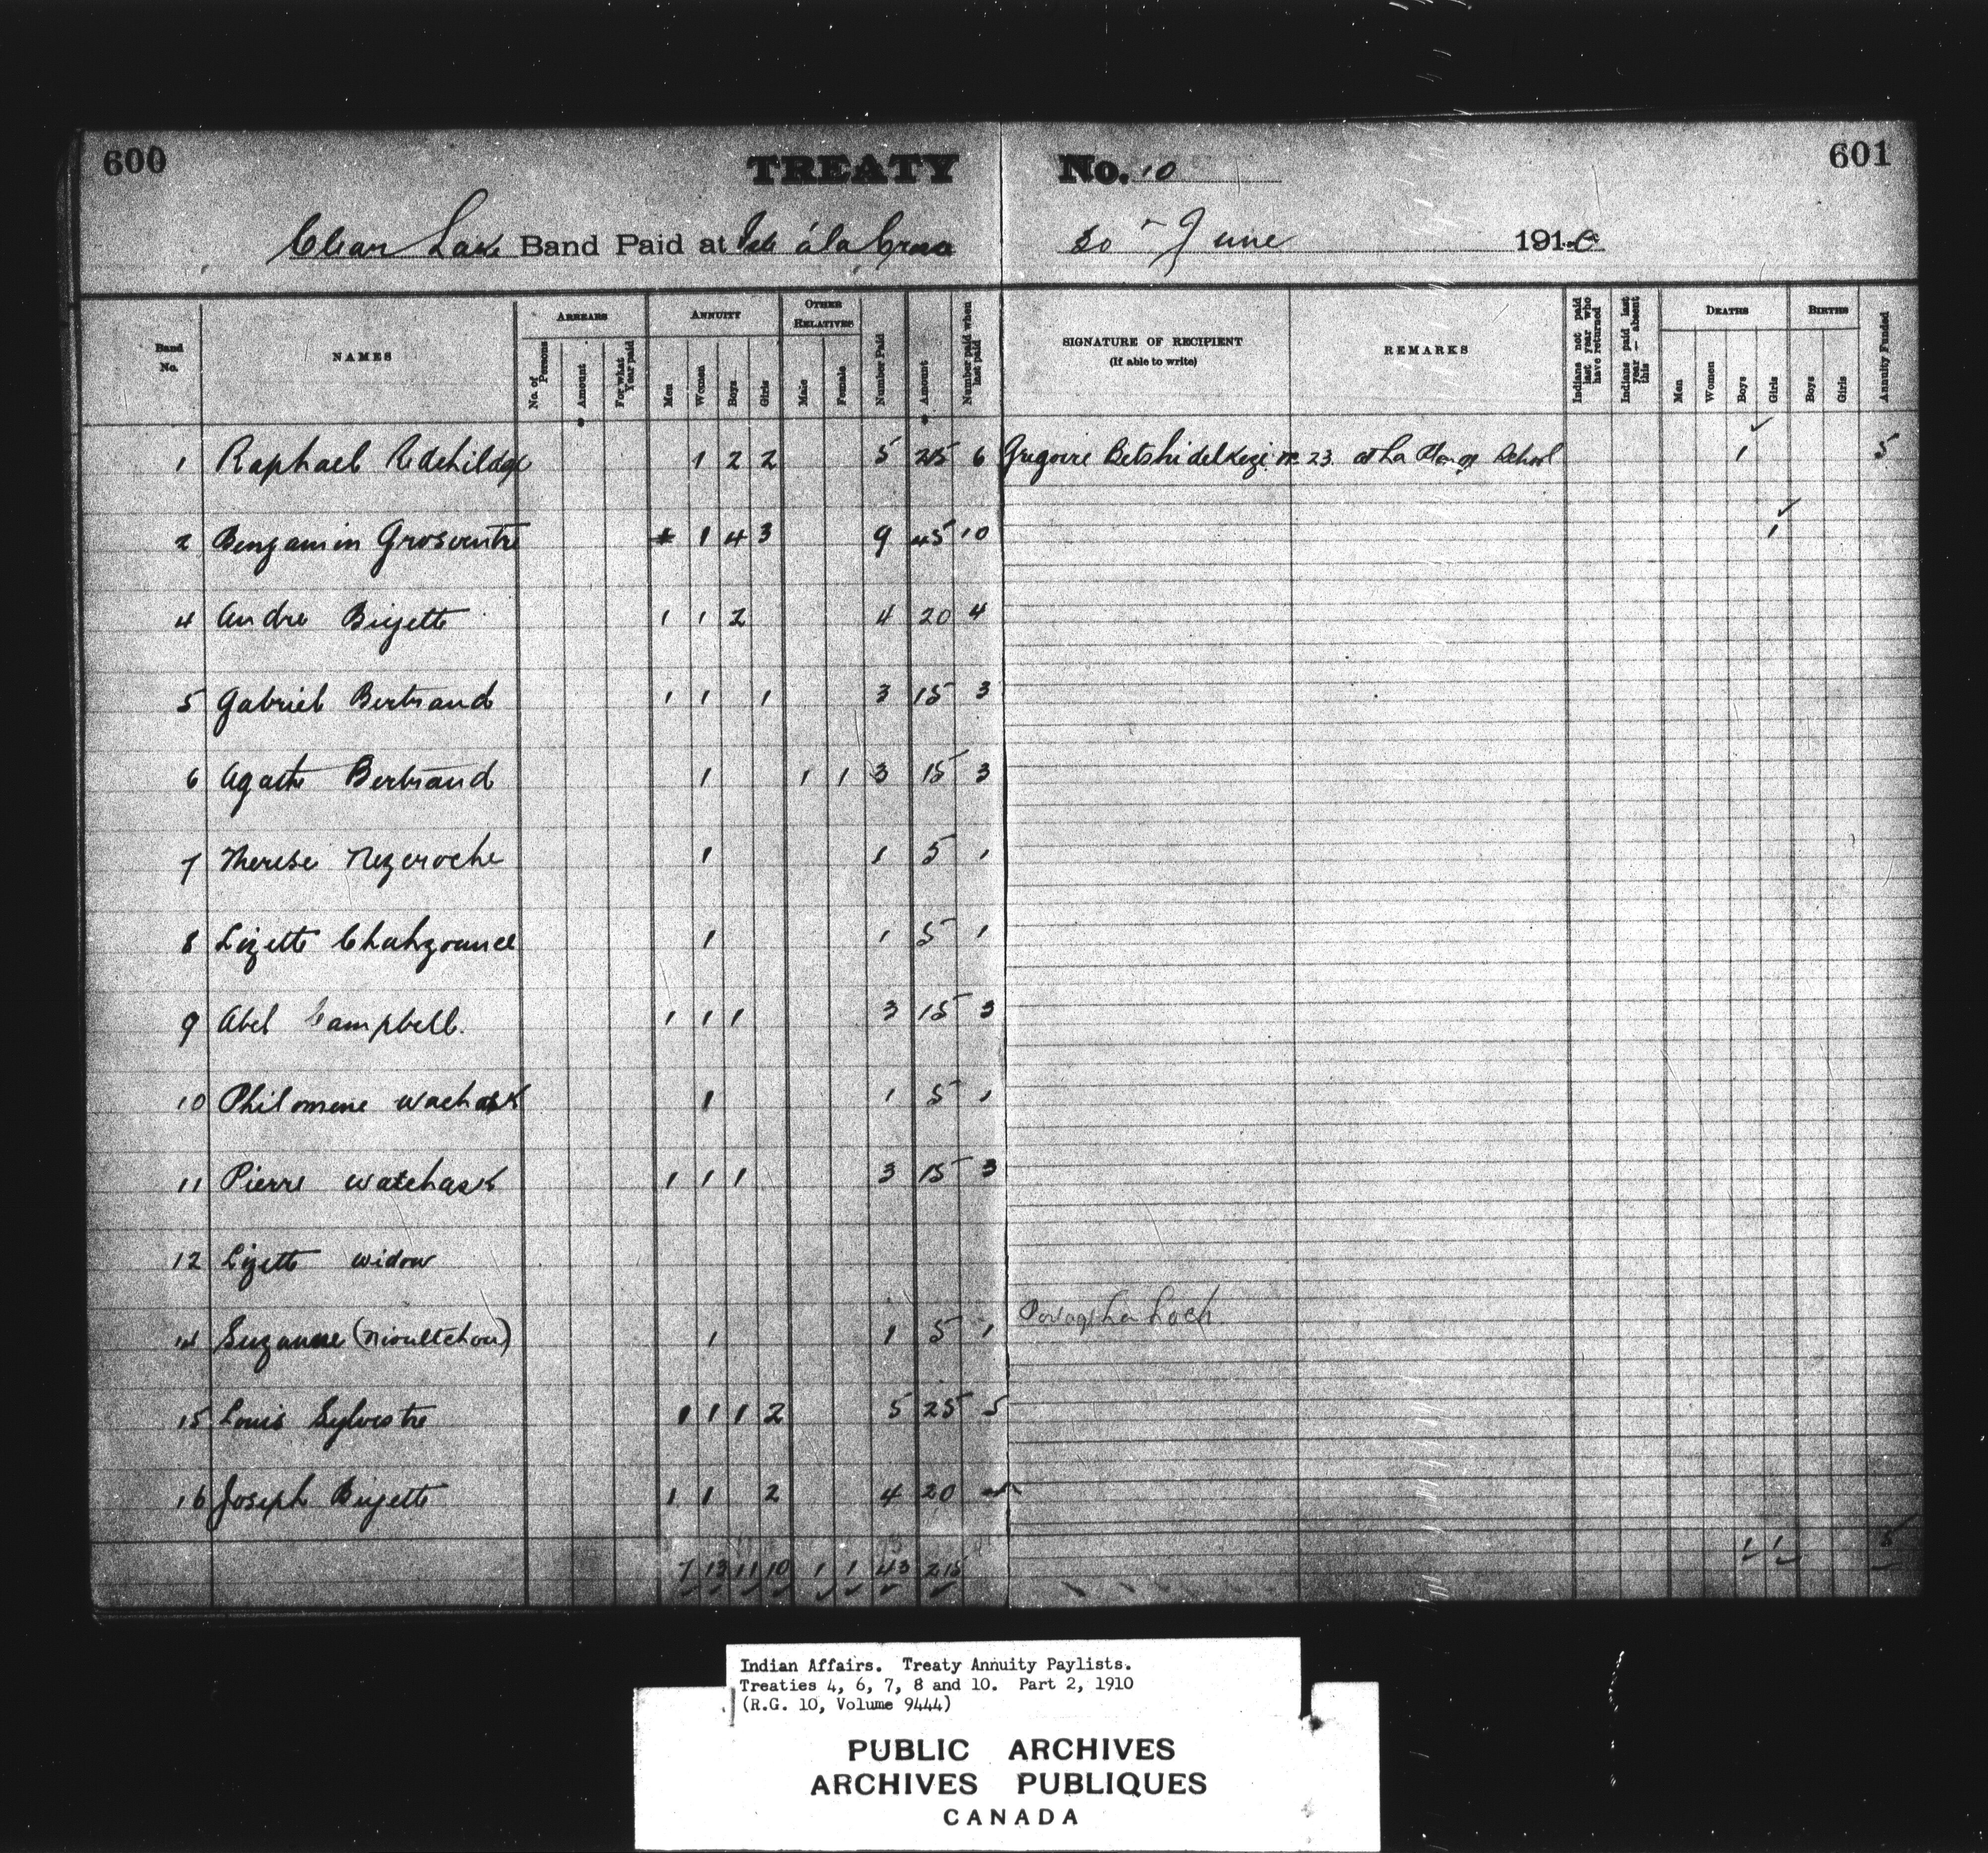 600 TREATY No. 10 601
Clear Lake Band Paid at Isle á la Crosse 30th June 1910
Band No. NAMES ARREARS No. of Persons Amount For what Year paid ANNUITY Men Women Boys Girls OTHER RELATIVES Male Female Number Paid Amount Number paid when last paid SIGNATURE OF RECIPIENT (If able to write) REMARKS Indians not paid last year who have returned Indians paid last year — absent this DEATHS Men Women Boys Girls BIRTHS Boys Girls Annuity Funded
1 Raphael 1 2 2 5 25 6 Gregoire No 23 at La Plonge School 1 5
2 Benjamin Grosventre 1 4 3 9 45 10 1
4 Andre Bigette 1 1 2 4 20 4
5 Gabriel Bertrand 1 1 1 3 15 3
6 Agathe Bertrand 1 1 1 3 15 3
7 Therese Nezcroche 1 1 5 1
8 Lizette 1 1 5 1
9 Abel Campbell. 1 1 1 3 15 3
10 Philomene Wachask 1 1 5 1
11 Pierre Watchask 1 1 1 3 15 3
12 Lizette widow
14 Suzanne (Nioultchou) 1 1 5 1
15 Louis Sylvestre 1 1 1 2 5 25 5
16 Joseph Bigette 1 1 2 4 20
7 13 11 10 1 1 43 215 1 1 5
Indian Affairs. Treaty Annuity Paylists.
Treaties 4, 6, 7, 8 and 10. Part 2, 1910
(R.G. 10, Volume 9444)
PUBLIC ARCHIVES
ARCHIVES PUBLIQUES
CANADA